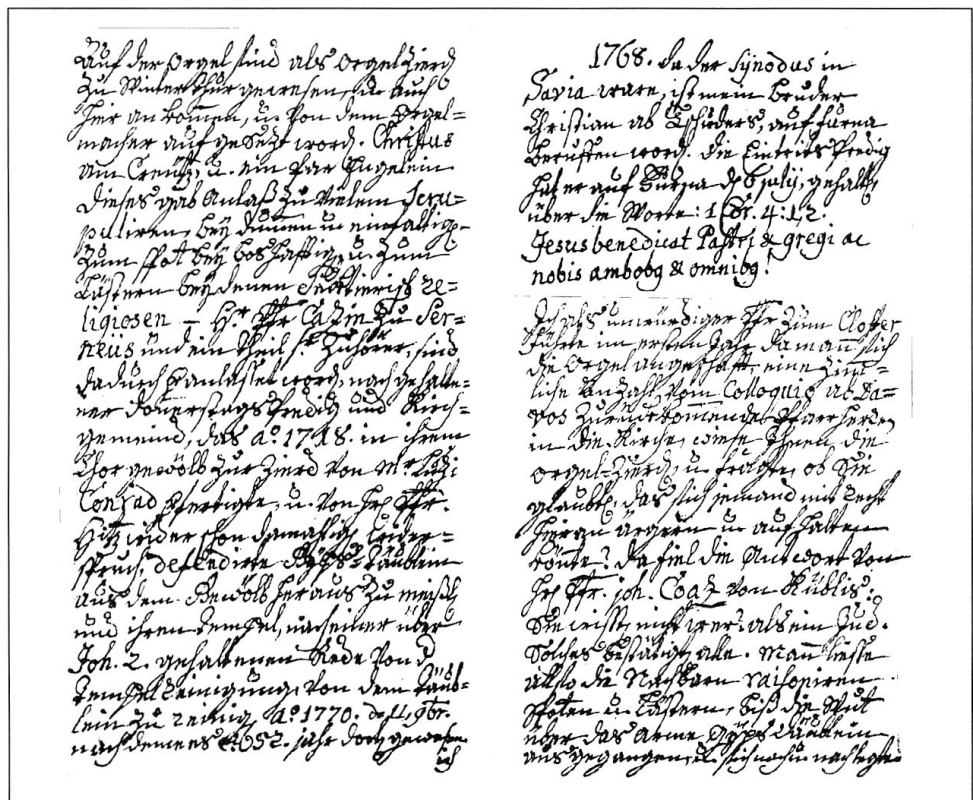 Auf der Orgel sind als Orgel Zierd
Zu Winterthur gewesen, u. auch
hier ankom̅en, u. von dem Orgel=
macher auf gesezt word. Christus
am Creutz, u. ein par Engelein
dieses gab Anlaß zu vielem Scru=
puliren, bey dum̅en u. einfältig.
Zum spot bey boshafftig, u. zum
Lästern bey denen
ligiosen – Hr. Pfr Catzin zu Ser=
neüs und ein theil sr. Zuhörer, sind
dadurch veranlasset word, nach gehalte=
ner donerstags Predig und Kirch=
gemeind, das ao. 1748. in ihrem
Chor gewölb zur Zierd von Mr.
Conrad verfertigte, u. von H. Pfr.
Hitz wider schon damahlig wider=
spruch, defendirte Gÿps=Täublein
aus dem Gewölb heraus zu
und ihren Tempel, nach einer über
Joh. 2. gehaltenen Rede von d
Tempel Reinigung, von dem Täub=
lein zu reinig. Ao. 1770. d. 4. 9br.
nach demme es 22. jahr dort gewesen.
ich
1768. da der Synodus in
Savia ware, ist mein Bruder
Christian ab Tschiders, auf furna
beruffen word. die Eintritts Predig
hat er auf Furna d july, gehalt,
über die Worte: 1 Cor. 4: 1,2.
Jesus benedicat Pastori & gregi ac
nobis ambobg & omnibg!
Ich als unwürdiger Pfr zum Closter
führte im ersten Jahr da mann sich
die Orgel angeschafft, eine Zim̅=
liche Anzahl, vom Colloquio ab Da=
vos zurück kom̅ende Pfarrherren
in die Kirche, wiese Ihnen die
Orgel=Zierd, u. fragte, ob Sie
glaubt, das sich jemand mit Recht
hieran ärgern u. aufhalten
könte? da fiel die Antwort von
H Pfr. Joh. Coaz von Küblis:
Sie wisst nicht wer? als ein Jud.
Solches bestätigt alle. Mann liesse
also die Nachbarn raisoniren
Spoten u. Lästern, biß die Wut
über das arme Gÿps däublein
ausgegangen, u. sich nach u. nach legte